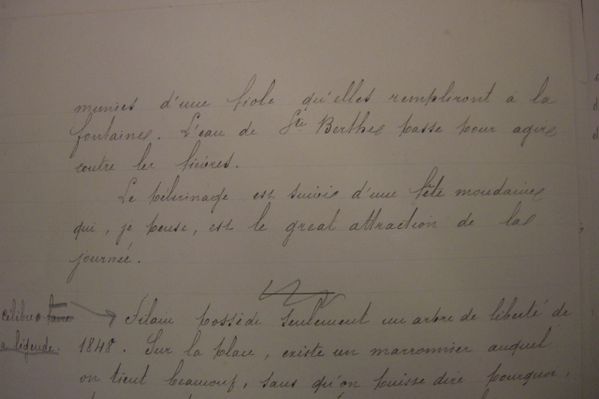 munies d'une fiole qu'elles rempliront à la
fontaine. L'eau de Ste Berthe passe pour agir
contre les fièvres.
Le pèlerinage est suivie d'une fête mondaine
qui, je pense, est le great attraction de la
journée.
Filain possède seulement un arbre de liberté de
a légende. 1848. Sur la place, existe un marronnier auquel
on tient beaucoup, sans qu'on puisse dire pourquoi,